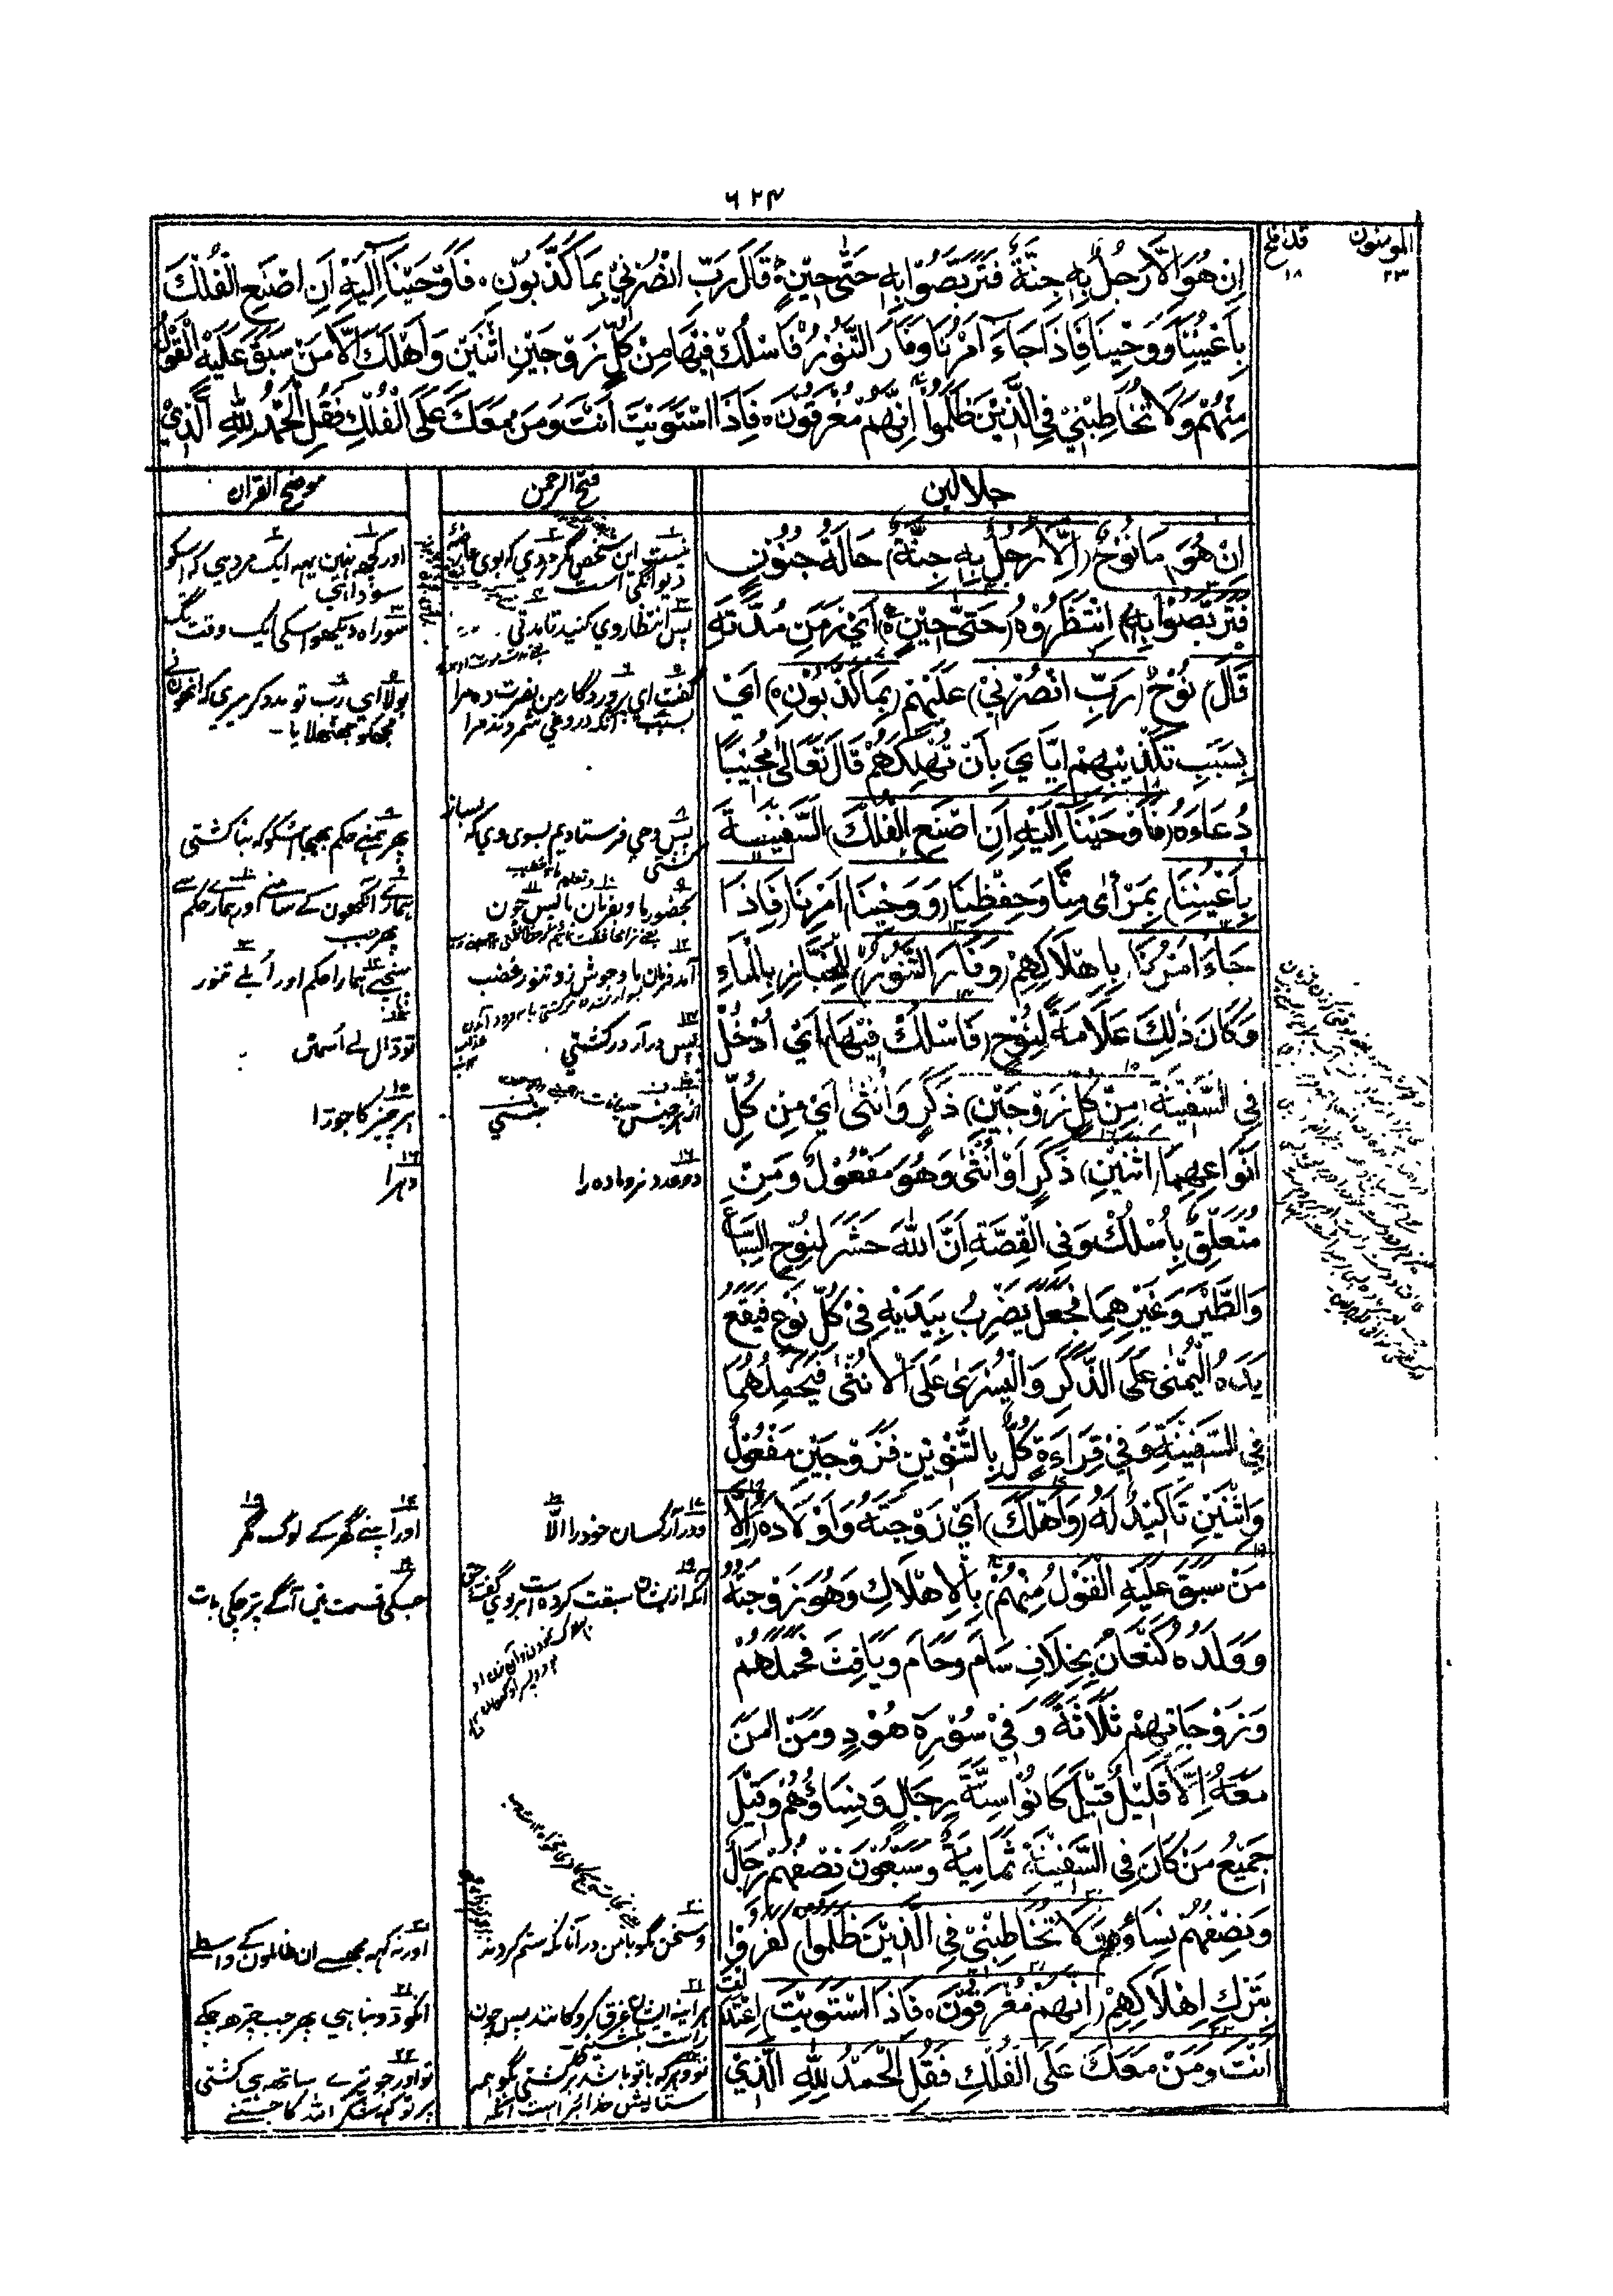 ٦٢٤
المومنون ٢٣
قد افلح ١٨
اِنْ هُوَ اِلَّا رَجُلٌ بِهٖ جِنَّةٌ فَتَرَبَّصُوْا بِهٖ حَتّٰى حِيْنٍ قَالَ رَبِّ انْصُرْنِيْ بِمَا كَذَّبُوْنِ ه فَاَوْحَيْنَا اِلَيْهِ اَنِ اصْنَعِ الْفُلْكَ
بِاَعْيُنِنَا وَوَحْيِنَا فَاِذَا جَاءَ اَمْرُنَا وَفَارَ التَّنُّوْرُ فَاسْلُكْ فِيْهَا مِنْ كُلٍّ زَوْجَيْنِ اثْنَيْنِ وَاَهْلَكَ اِلَّا مَنْ سَبَقَ عَلَيْهِ الْقَوْلُ
مِنْهُمْ وَلَا تُخَاطِبْنِيْ فِي الَّذِيْنَ ظَلَمُوْا اِنَّهُمْ مُغْرَقُوْنَ ه فَاِذَا اسْتَوَيْتَ اَنْتَ وَمَنْ مَعَكَ عَلَى الْفُلْكِ فَقُلِ الْحَمْدُ لِلّٰهِ الَّذِيْ
جلالين
اِنْ هُوَ مَا نُوْحٌ (اِلَّا رَجُلٌ بِهٖ جِنَّةٌ) حَالَةُ جُنُوْنٍ
فَتَرَبَّصُوْا بِهٖ) اِنْتَظِرُوْهُ (حَتّٰى حِيْنٍ ه) اَيْ زَمَنِ مُدَّتِهٖ
قَالَ) نُوْحٌ (رَبِّ انْصُرْنِيْ) عَلَيْهِمْ (بِمَا كَذَّبُوْنِ ه) اَيْ
بِسَبَبِ تَكْذِيْبِهِمْ اِيَّايَ بِاَنْ تُهْلِكَهُمْ قَالَ تَعَالٰى مُجِيْبًا
دُعَاءَهُ (فَاَوْحَيْنَا اِلَيْهِ اَنِ اصْنَعِ الْفُلْكَ) السَّفِيْنَةَ
بِاَعْيُنِنَا) بِمَرْاًى مِنَّا وَحِفْظِنَا (وَوَحْيِنَا) اَمْرِنَا (فَاِذَا
جَاءَ اَمْرُنَا) بِاِهْلَاكِهِمْ (وَفَارَ التَّنُّوْرُ) لِلْخَبَّازِ بِالْمَاءِ
وَكَانَ ذٰلِكَ عَلَامَةً لِنُوْحٍ (فَاسْلُكْ فِيْهَا) اَيْ اُدْخُلْ
فِي السَّفِيْنَةِ (مِنْ كُلٍّ زَوْجَيْنِ) ذَكَرٍ وَاُنْثٰى اَيْ مِنْ كُلِّ
اَنْوَاعِهِمَا (اثْنَيْنِ) ذَكَرٍ اَوْ اُنْثٰى وَهُوَ مَفْعُوْلٌ وَمِنْ
مُتَعَلِّقٌ بِاُسْلُكْ وَفِي الْقِصَّةِ اَنَّ اللّٰهَ حَشَرَ لِنُوْحٍ السِّبَاعَ
وَالطَّيْرَ وَغَيْرَهِمَا فَجَعَلَ يَضْرِبُ بِيَدَيْهِ فِيْ كُلِّ نَوْعٍ فَيَقَعُ
يَدُهُ الْيُمْنٰى عَلَى الذَّكَرِ وَالْيُسْرٰى عَلَى الْاُنْثٰى فَيَحْمِلُهُمَا
فِي السَّفِيْنَةِ وَفِيْ قِرَاءَةٍ كُلٍّ بِالتَّنْوِيْنِ فَزَوْجَيْنِ مَفْعُوْلٌ
وَاثْنَيْنِ تَاكِيْدٌ لَهُ (وَاَهْلَكَ) اَيْ زَوْجَتَهُ وَاَوْلَادَهُ (اِلَّا
مَنْ سَبَقَ عَلَيْهِ الْقَوْلُ مِنْهُمْ) بِالْاِهْلَاكِ وَهُوَ زَوْجَتُهُ
وَوَلَدُهُ كَنْعَانُ بِخِلَافِ سَامَ وَحَامَ وَيَافِثَ فَحَمَلَهُمْ
وَزَوْجَاتِهِمْ ثَلَاثَةً وَفِيْ سُوْرَةِ هُوْدٍ وَمَنْ اٰمَنَ
مَعَهُ اِلَّا قَلِيْلٌ قِيْلَ كَانُوْا سِتَّةَ رِجَالٍ وَنِسَاؤُهُمْ وَقِيْلَ
جَمِيْعُ مَنْ كَانَ فِي السَّفِيْنَةِ ثَمَانِيَةٌ وَسَبْعُوْنَ نِصْفُهُمْ رِجَالٌ
وَنِصْفُهُمْ نِسَاؤُهُنَّ لَا تُخَاطِبْنِيْ فِي الَّذِيْنَ ظَلَمُوْا) كَفَرُوْا
بِتَرْكِ اِهْلَاكِهِمْ (اِنَّهُمْ مُغْرَقُوْنَ ه فَاِذَا اسْتَوَيْتَ) اِعْتَدَلْتَ
اَنْتَ وَمَنْ مَعَكَ عَلَى الْفُلْكِ فَقُلِ الْحَمْدُ لِلّٰهِ الَّذِيْ
فتح الرحمن
نيست اين شخص مگر مردي كه بوي عارضه
ديوانگي است
پس انتظار وي كنيد تا مدتي
گفت اي پروردگار من نصرت ده مرا
بسبب آنكه دروغي شمردند مرا
پس وحي فرستاديم بسوي وي كه بساز
كشتي
بحضور ما و بفرمان ما پس چون
آمد فرمان ما و جوش زد تنور غضب
پس در آر در كشتي
از هر جنس
جنسي
دو عدد نر و ماده را
و در آر كسان خود را الّا
آنكه از ايشان سبقت كرده است بروي گفته حق
و سخن مگو با من در آنانكه ستم كردند
هر آينه ايشان غرق كردگانند پس چون
راست بنشيني
تو و هر كه با تو باشد بر كشتي بگو همه
ستايش خدائراست آنكه
موضح القران
اور كچهه نهين يهه ايك مرد هي كه اسكو
سودا هي
سو راه ديكهو اسكي ايك وقت تك
بولا اي رب تو مدد كر ميري كه انهون نے
مجهكو جهٹهلايا -
پهر همنے حكم بهيجا اسكو كه بنا كشتي
هماري آنكهون كے سامنے اور همارے حكم سے
پهر جب
پهنچے همارا حكم اور اُبلے تنور
تو ڈال لے اُسمين
هر چيز كا جوڑا
دهرا
اور اپنے گهر كے لوگ مگر
جسكي قسمت مين آگے پڑ چكي بات
اور نه كهه مجهسے ان ظالمون كے واسطے
انكو ڈوبنا هي پهر جب چڑهه چكے
تو اور جو تيرے ساتهه هي كشتي
پر تو كهه شكر الله كا جسنے